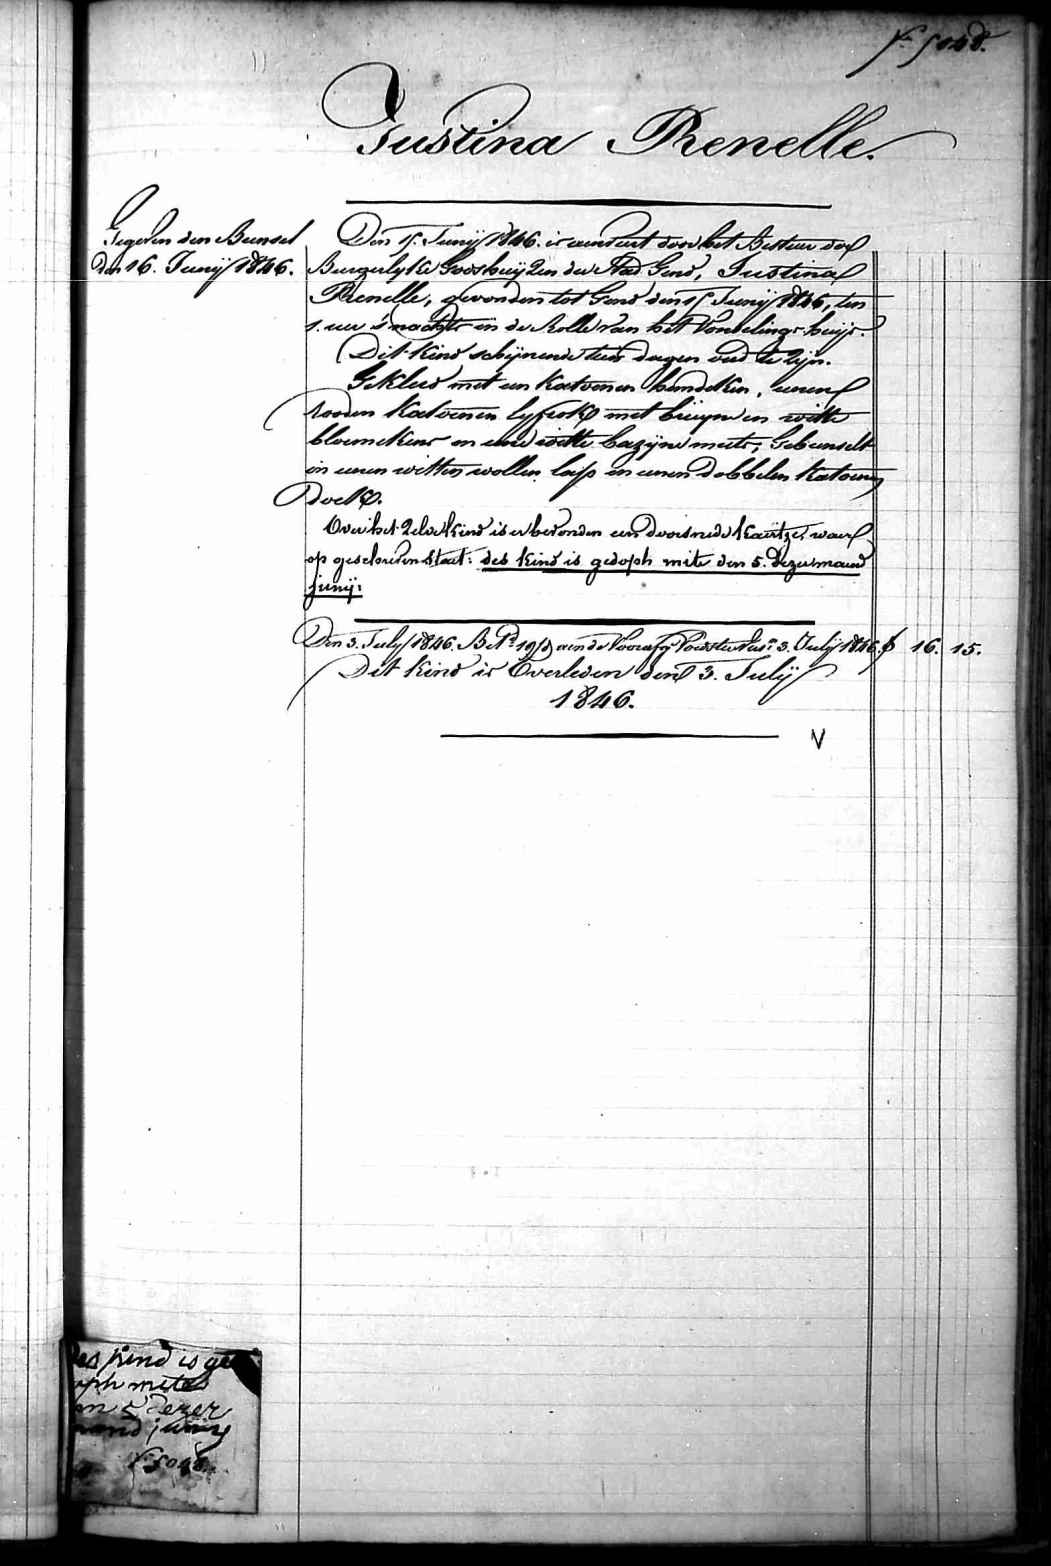 N.º 5048.
Justina Renelle.
Gegeven den Bunsel
den 16. Junij 1846.
Den 15. Junij 1846. is aenveert door het Bestuer der
Burgerlyke Godshuijzen der Stad Gend, Justina
Renelle, gevonden tot Gend den 15 Junij 1846, ten
1. ure 's nachts in de Rolle van het Vondelings huijs.
Dit kind schijnende tien dagen oud te zijn.
Gekleed met een katoenen hemdeken, eenen
rooden katoenen lyfrok met bruyne en witte
bloemekens en eene witte bazyne muts; Gebunselt
in eenen witten wollen laps en eenen dobbelen katoenen
doek.
Over het zelve kind is er bevonden een doorsnede kaertje, waer
op geschreven staet: des kind is gedoph mite den 5. dezer maend
junij:
Den 3. July 1846. Bet. 19/ aen de Voedster 3. Julij 1846. f 16. 15.
Dit kind is Overleden den 3. Julij
1846.
V
des kind is ge
oph mite
en 5 dezer
maend junij
N.º 5048.